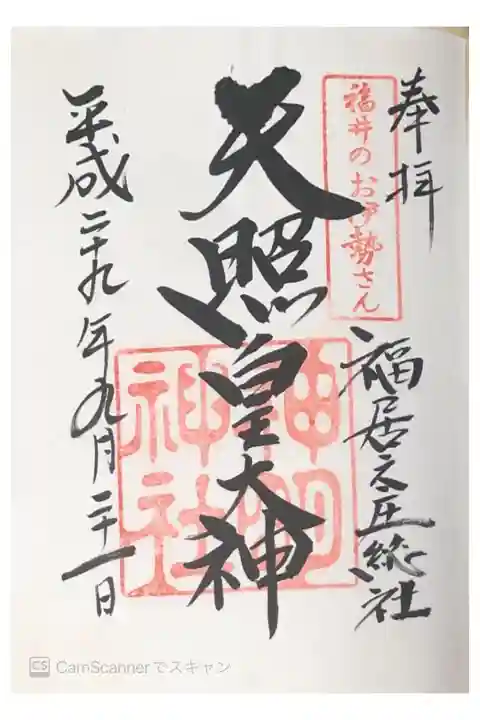 奉拝
福井のお伊勢さん
福居之庄総社
天照皇大神
神明
神社
平成二十九年九月二十一日
CS CamScannerでスキャン